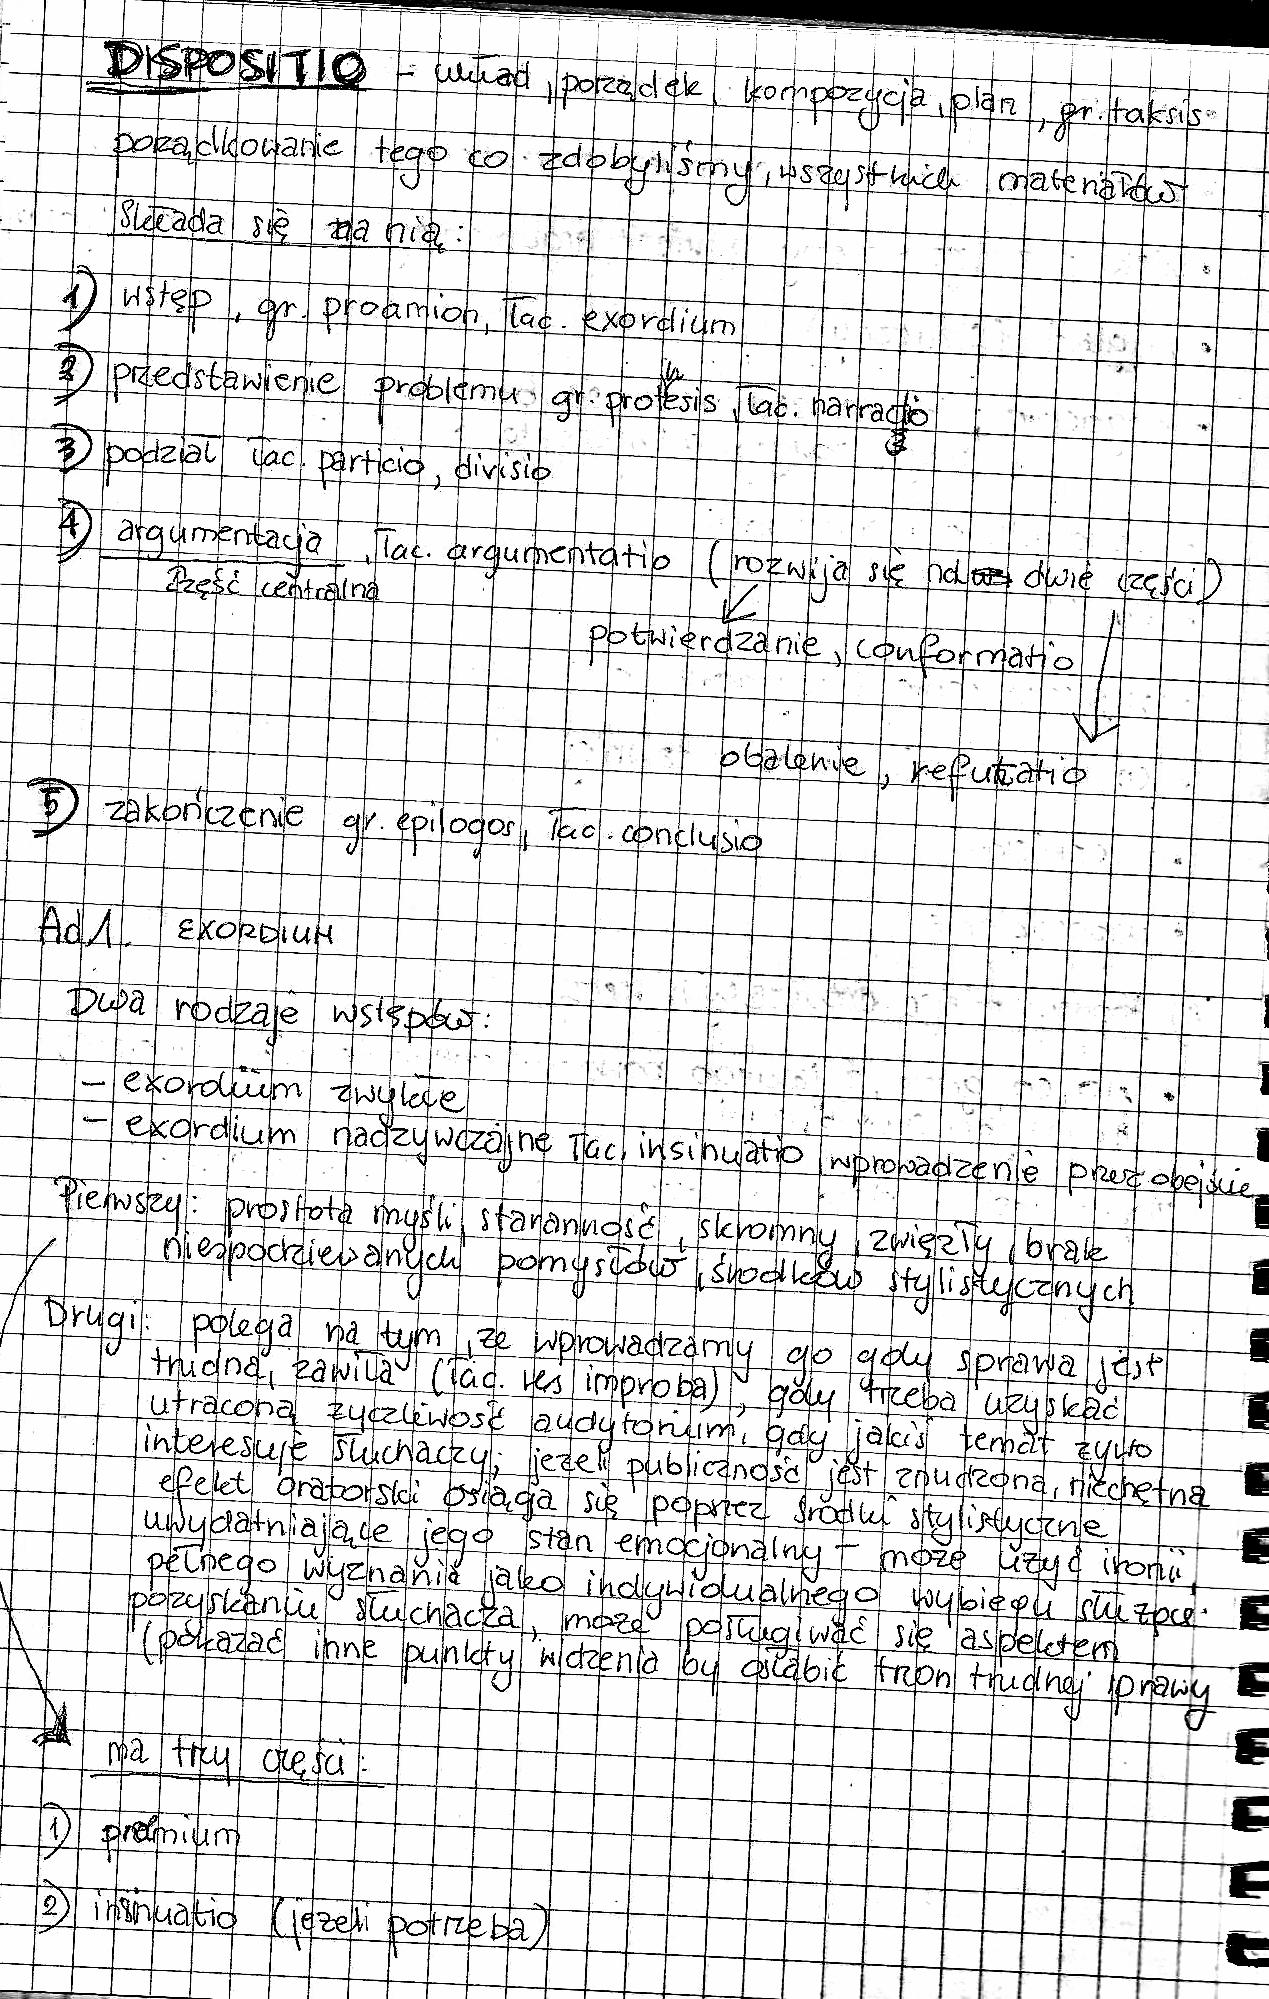 DISPOSITIO – układ, porządek, kompozycja, plan, gr. taksis
porządkowanie tego co zdobyliśmy, wszystkich materiałów
Składa się na nią:
1) wstęp, gr. proamion, łac. exordium
2) przedstawienie problemu gr. prothesis, łac. narratio
3) podział łac. particio, divisio
4) argumentacja, łac. argumentatio (rozwija się na dwie części)
część centralna
potwierdzanie, conformatio
obalenie, refutatio
5) zakończenie gr. epilogos, łac. conclusio
Ad1. EXORDIUM
Dwa rodzaje wstępów:
– exordium zwykłe
– exordium nadzywczajne łac. insinuatio, wprowadzenie przez obejście
Pierwszy: prostota myśli, staranność, skromny, zwięzły, brak
niespodziewanych pomysłów, środków stylistycznych
Drugi: polega na tym, że wprowadzamy go gdy sprawa jest
trudna, zawiła (łac. res improba), gdy trzeba uzyskać
utraconą życzliwość audytorium, gdy jakiś temat żywo
interesuje słuchaczy; jeżeli publiczność jest znudzona, niechętna
efekt oratorski osiąga się poprzez środki stylistyczne
uwydatniające jego stan emocjonalny – może użyć ironii,
pełnego wyznania jako indywidualnego wybiegu służące
pozyskaniu słuchacza, może posługiwać się aspektem
(pokazać inne punkty widzenia by osłabić tron trudnej sprawy
ma trzy części:
1) premium
2) insinuatio (jeżeli potrzeba)